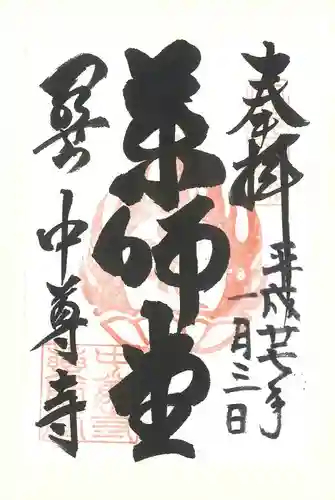 奉拝
平成廿七年
一月三日
薬師堂
関山
中尊寺